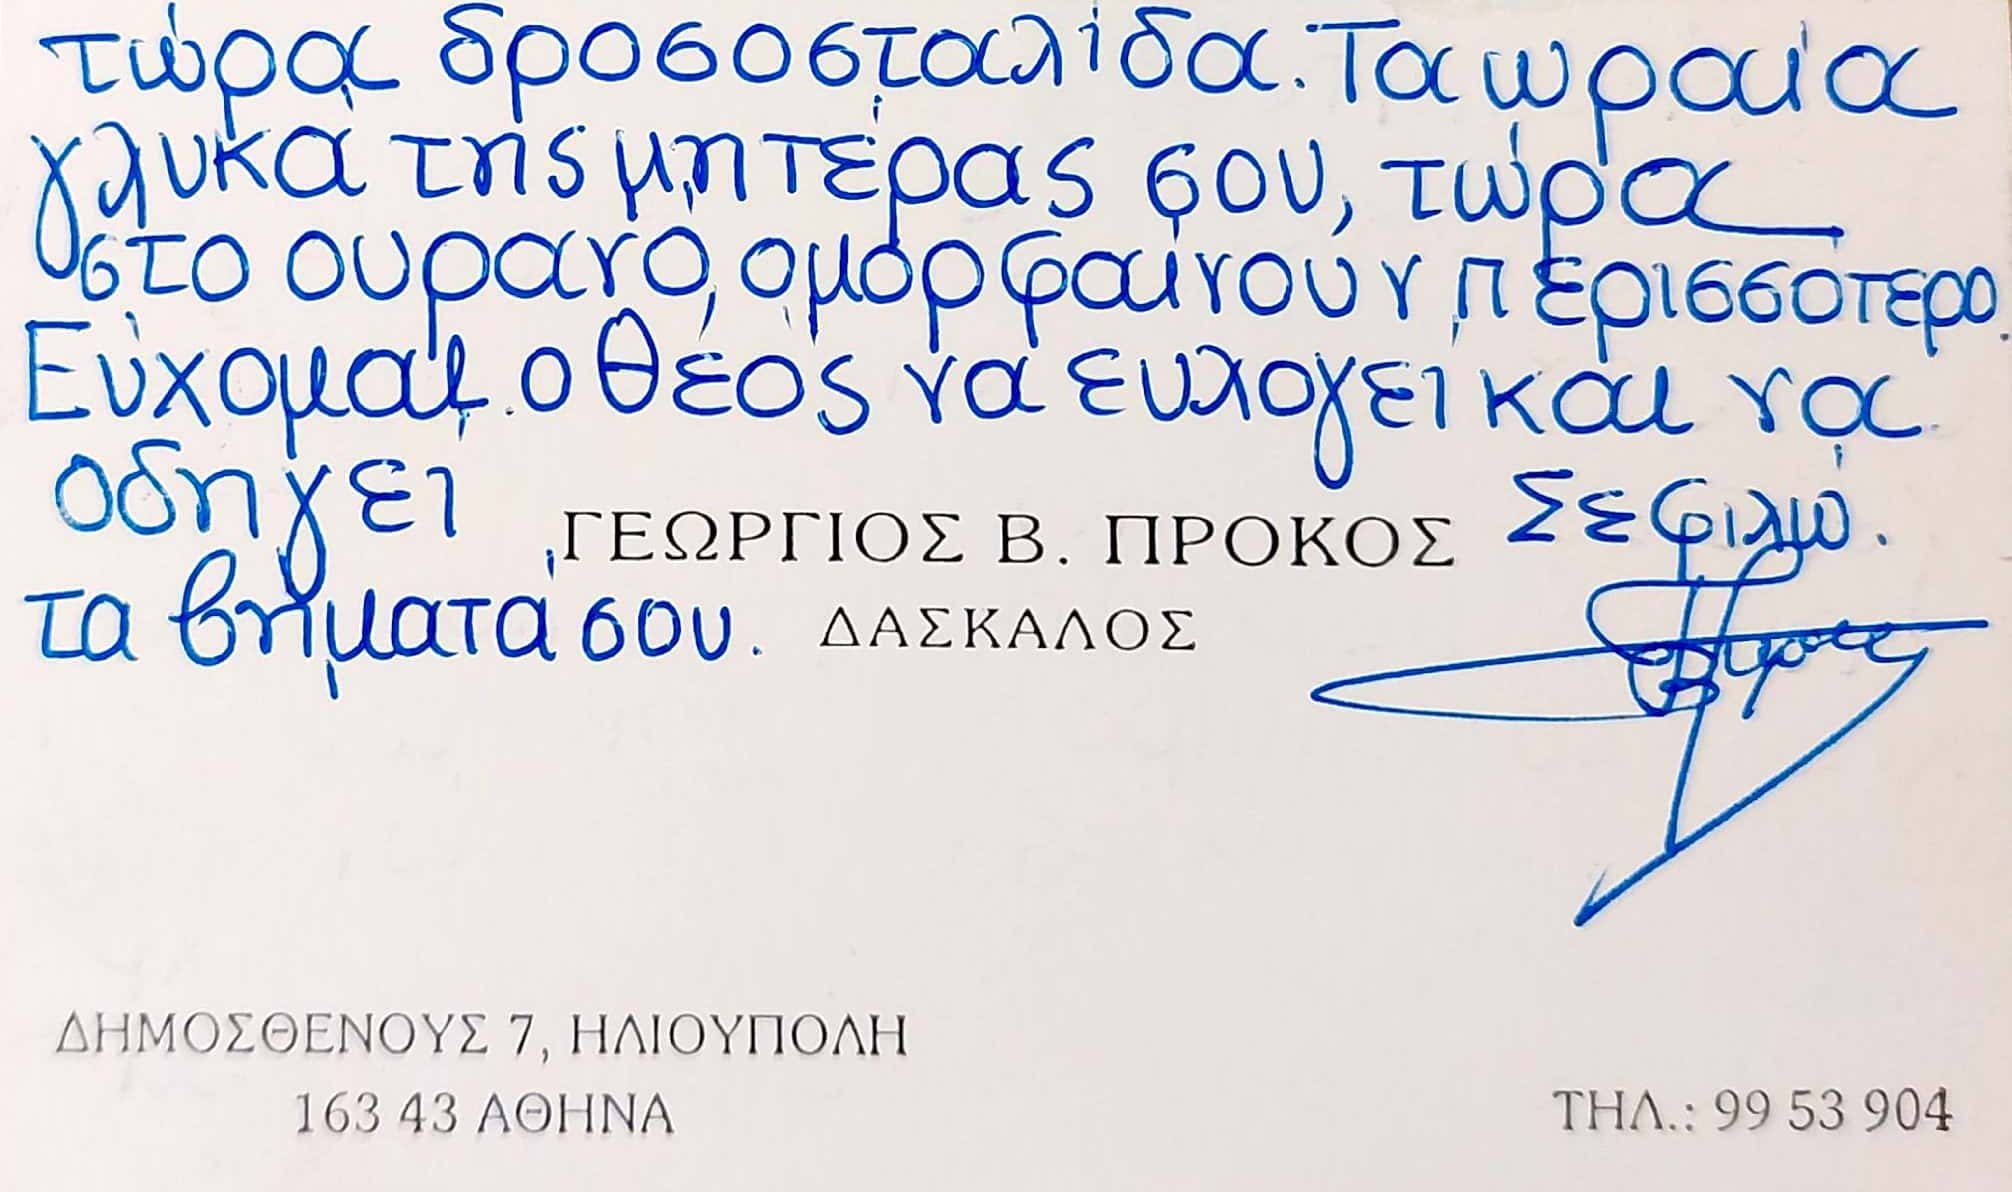 τώρα δροσοσταλίδα. Τα ωραία
γλυκά της μητέρας σου, τώρα
στο ουρανό, ομορφαίνουν περισσότερο.
Εύχομαι ο θεός να ευλογεί και να
οδηγεί
τα βήματα σου.
ΓΕΩΡΓΙΟΣ Β. ΠΡΟΚΟΣ
ΔΑΣΚΑΛΟΣ
Σε φιλώ.
ΔΗΜΟΣΘΕΝΟΥΣ 7, ΗΛΙΟΥΠΟΛΗ
163 43 ΑΘΗΝΑ
ΤΗΛ.: 99 53 904